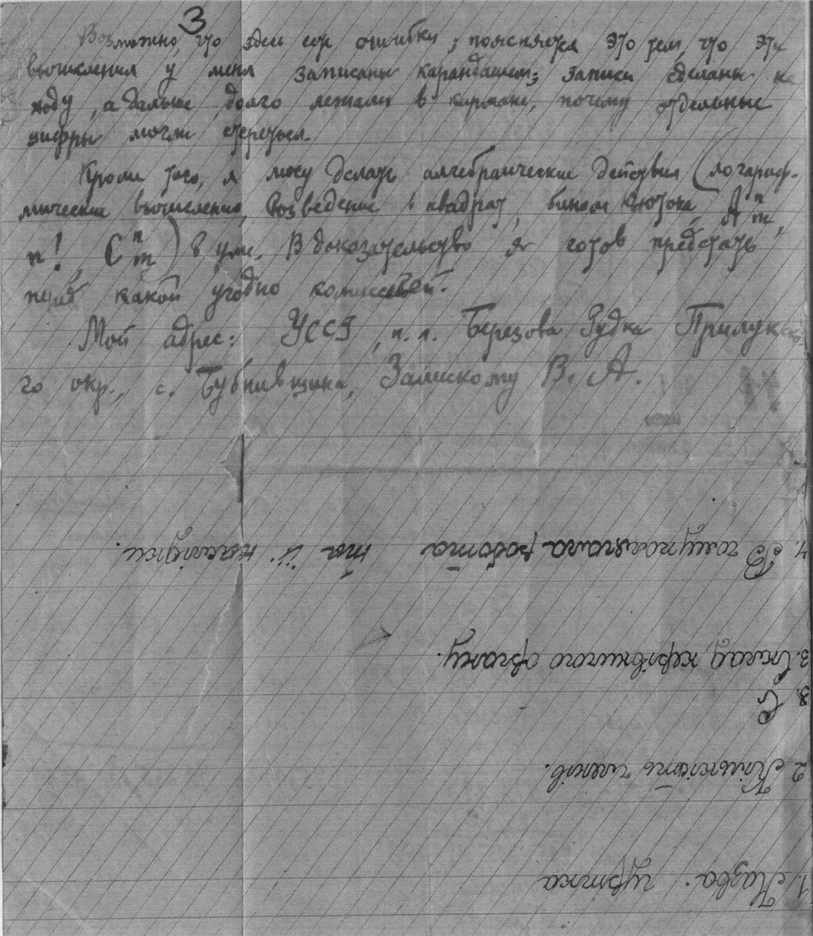 3
Возможно, что здесь есть ошибки; поясняется это тем, что эти
вычисления у меня записаны карандашем; записи сделаны на
ходу, а дальше долго лежали в кармане, почему отдельные
цифры могли стереться.
Кроме того, я могу делать алгебраические действия (логариф-
мические вычисления, возведение в квадрат, бином Нютона, Aⁿₘ,
n!, Cⁿₘ) в уме. В доказательство я готов предстать
перед какой угодно комиссией.
Мой адрес: УССР, п.о. Березова Рудка Прилукско-
го окр., с. Бубнивщина, Залискому В. А.
1. Назва гуртка
2 Кількість членів.
3. С
3. Склад керівничого органу.
4. В чому полягала робота та її наслідки.